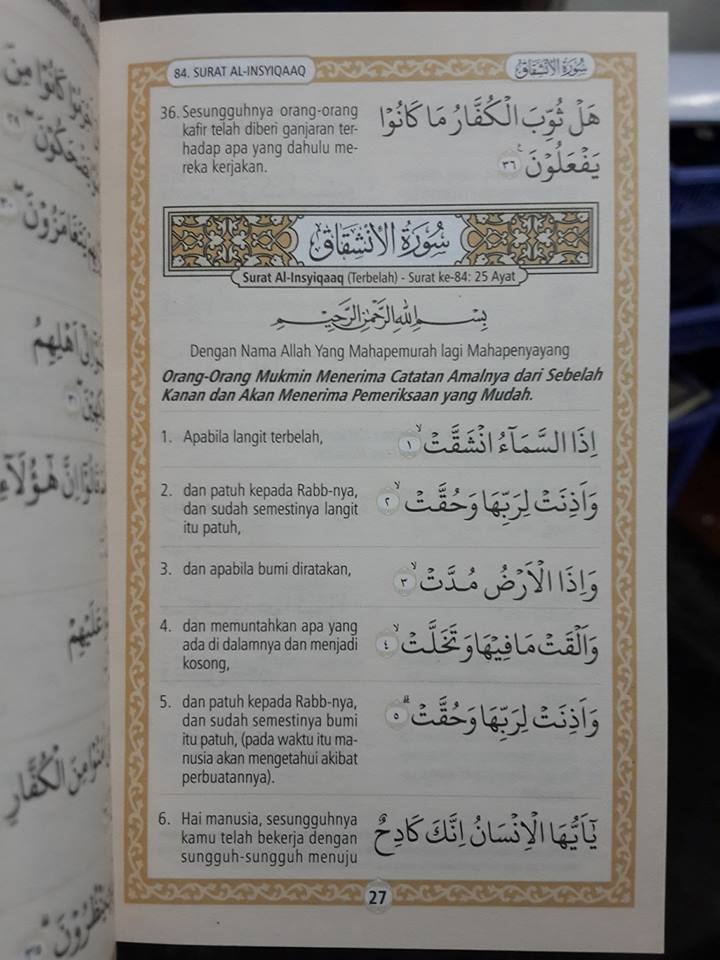 84. SURAT AL-INSYIQAAQ
سُورَةُ الْاِنْشِقَاقِ
36. Sesungguhnya orang-orang
kafir telah diberi ganjaran ter-
hadap apa yang dahulu me-
reka kerjakan.
هَلْ ثُوِّبَ الْكُفَّارُ مَا كَانُوْا
يَفْعَلُوْنَ ٣٦
سُورَةُ الْاِنْشِقَاقِ
Surat Al-Insyiqaaq (Terbelah) - Surat ke-84: 25 Ayat
بِسْمِ اللهِ الرَّحْمٰنِ الرَّحِيْمِ
Dengan Nama Allah Yang Mahapemurah lagi Mahapenyayang
Orang-Orang Mukmin Menerima Catatan Amalnya dari Sebelah
Kanan dan Akan Menerima Pemeriksaan yang Mudah.
1. Apabila langit terbelah,
اِذَا السَّمَآءُ انْشَقَّتْۙ ١
2. dan patuh kepada Rabb-nya,
dan sudah semestinya langit
itu patuh,
وَاَذِنَتْ لِرَبِّهَا وَحُقَّتْۙ ٢
3. dan apabila bumi diratakan,
وَاِذَا الْاَرْضُ مُدَّتْۙ ٣
4. dan memuntahkan apa yang
ada di dalamnya dan menjadi
kosong,
وَاَلْقَتْ مَا فِيْهَا وَتَخَلَّتْۙ ٤
5. dan patuh kepada Rabb-nya,
dan sudah semestinya bumi
itu patuh, (pada waktu itu ma-
nusia akan mengetahui akibat
perbuatannya).
وَاَذِنَتْ لِرَبِّهَا وَحُقَّتْۗ ٥
6. Hai manusia, sesungguhnya
kamu telah bekerja dengan
sungguh-sungguh menuju
يٰٓاَيُّهَا الْاِنْسَانُ اِنَّكَ كَادِحٌ
27
كَانُوْا مِنَ
يَضْحَكُوْنَ ٢٩
يَتَغَامَزُوْنَ ٣٠
اِلٰٓى اَهْلِهِمُ
قَالُوْٓا اِنَّ هٰٓؤُلَآءِ
عَلَيْهِمْ
مِنَ الْكُفَّارِ
يَنْظُرُوْنَ ٣٥